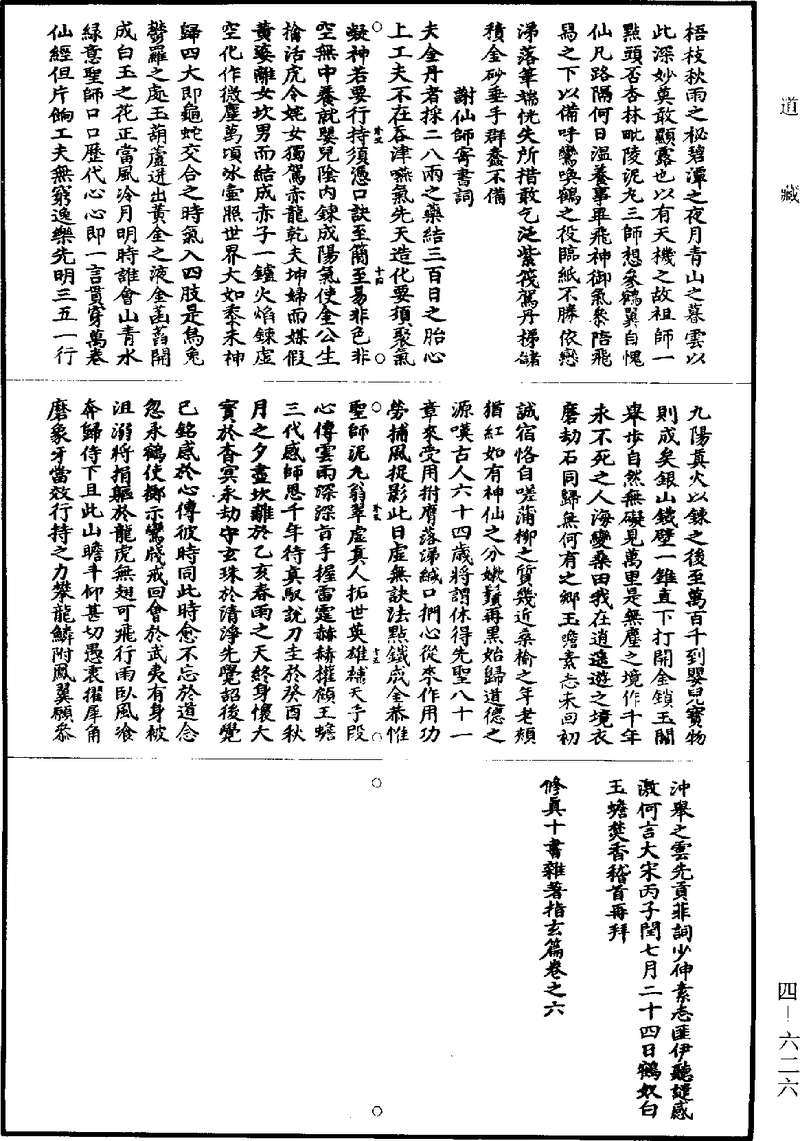 道藏
梧枝秋雨之秘碧潭之夜月青山之暮雲以
此深妙莫敢顯露也以有天機之故祖師一
點頭否杏林毗陵泥丸三師想參鶴翼自愧
仙凡路隔何日溫養事畢飛神御氣參陪飛
舄之下以備呼鸞喚鶴之役臨紙不勝依戀
涕落筆端恍失所措敢乞泛紫筏駕丹梯儲
積金砂垂手群蠢不備
謝仙師寄書詞
夫金丹者採二八兩之藥結三百日之胎心
上工夫不在吞津嚥氣先天造化要須聚氣
凝神若要行持須憑口訣至簡至易非色非
空無中養就嬰兒陰內鍊成陽氣使金公生
擒活虎令姹女獨駕赤龍乾夫坤婦而媒假
黃婆離女坎男而結成赤子一鑪火焰鍊虛
空化作微塵萬頃冰壺照世界大如黍米神
歸四大即龜蛇交合之時氣入四肢是烏兔
鬱羅之處玉葫蘆迸出黃金之液金菡萏開
成白玉之花正當風冷月明時誰會山青水
綠意聖師口口歷代心心即一言貫穿萬卷
仙經但片餉工夫無窮逸樂先明三五一行
九陽真火以鍊之後至萬百千到嬰兒寶物
則成矣銀山鐵壁一錐直下打開金鎖玉關
舉步自然無礙見萬里是無塵之境作千年
永不死之人海變桑田我在逍遙遊之境衣
磨劫石同歸無何有之鄉玉蟾素志未回初
誠宿恪自嗟蒲柳之質幾近桑榆之年老頰
猶紅如有神仙之分嫩鬚再黑始歸道德之
源嘆古人六十四歲將謂休得先聖八十一
章來受用拊膺落涕緘口捫心從來作用功
勞捕風捉影此日虛無訣法點鐵成金恭惟
聖師泥丸翁翠虛真人拓世英雄補天手段
心傳雲雨深深旨手握雷霆赫赫權顧玉蟾
三代感師恩千年待真馭說刀圭於癸酉秋
月之夕盡坎離於乙亥春雨之天終身懷大
寶於杳冥永劫守玄珠於清淨先覺詔後覺
已銘感於心傳彼時同此時愈不忘於道念
忽承鶴使擲示鸞牋戒回會於武夷有身被
沮溺將捐軀於龍虎無翅可飛行雨臥風飡
奔歸侍下且此山瞻斗仰甚切愚衷擢犀角
磨象牙當效行持之力攀龍鱗附鳳翼願參
沖舉之雲先貢菲詞少伸素志匪伊聽譴感
激何言大宋丙子閏七月二十四日鶴奴白
玉蟾焚香稽首再拜
修真十書雜著指玄篇卷之六
四—六二六